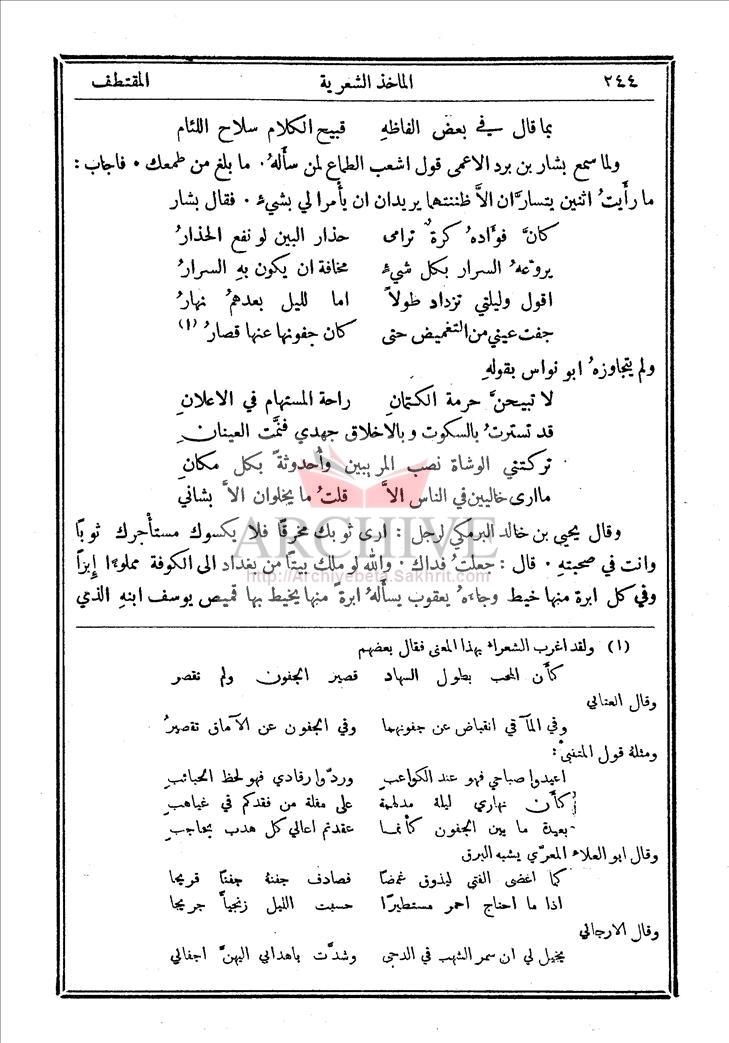 ٢٤٤ الماخذ الشعرية المقتطف
بما قال في بعض الفاظهِ قبيح الكلام سلاح اللئام
ولما سمع بشار بن برد الاعمى قول اشعب الطماع لمن سأَلهُ ۰ ما بلغ من طمعك ۰ فاجاب :
ما رأَيتُ اثنين يتسارَّان الاَّ ظننتهما يريدان ان يأْمرا لي بشيءٍ ۰ فقال بشار
كانَّ فوَّادهُ كرةٌ ترامى حذار البين لو نفع الحذارُ
يروّعهُ السرار بكل شيءٍ مخافة ان يكون بهِ السرارُ
اقول وليلتي تزداد طولاً اما لليل بعدهمُ نهارُ
جفت عيني من التغميض حتى كان جفونها عنها قصارُ (١)
ولم يتجاوزهُ ابو نواس بقولهِ
لا تبيحنَّ حرمة الكتمانِ راحة المستهام في الاعلانِ
قد تسترتُ بالسكوت وبالاخلاق جهدي فنمَّت العينانِ
تركتني الوشاة نصب المريبين وأُحدوثةً بكل مكانِ
ما ارى خاليين في الناس الاَّ قلتُ ما يخلوان الاَّ بشاني
وقال يحيى بن خالد البرمكي لرجل : ارى ثوبك مخرقًا فلا يكسوك مستأْجرك ثوبًا
وانت في صحبتهِ ۰ قال : جعلتُ فداك ۰ والله لو ملك بيتًا من بغداد الى الكوفة مملوءًا إبرًا
وفي كل ابرة منها خيط وجاءهُ يعقوب يسأَلهُ ابرةً منها يخيط بها قميص يوسف ابنهِ الذي
ARCHIVE
http://Archivebeta.Sakhrit.com
(١) ولقد اغرب الشعراء بهذا المعنى فقال بعضهم
كأَن المحب بطول السهاد قصير الجفون ولم تقصر
وقال العتابي
وفي المآقي انقباض عن جفونهما وفي الجفون عن الآماق تقصيرُ
ومثلهُ قول المتنبي :
اعيدوا صباحي فهو عند الكواعبِ وردّوا رقادي فهو لحظ الحبائبِ
كأَن نهاري ليلة مدلهمة على مقلة من فقدكم في غياهبِ
بعيدة ما بين الجفون كأَنما عقدتم اعالي كل هدب بحاجبِ
وقال ابو العلاء المعرّي يشبه البرق
كما اغضى الفتى ليذوق غمضًا فصادف جفنهُ جفنًا قريحا
اذا ما احتاج احمر مستطيرًا حسبت الليل زنجيًّا جريحا
وقال الارجاني
يخيل لي ان سمر الشهب في الدجى وشدَّت باهدابي اليهنَّ اجفاني